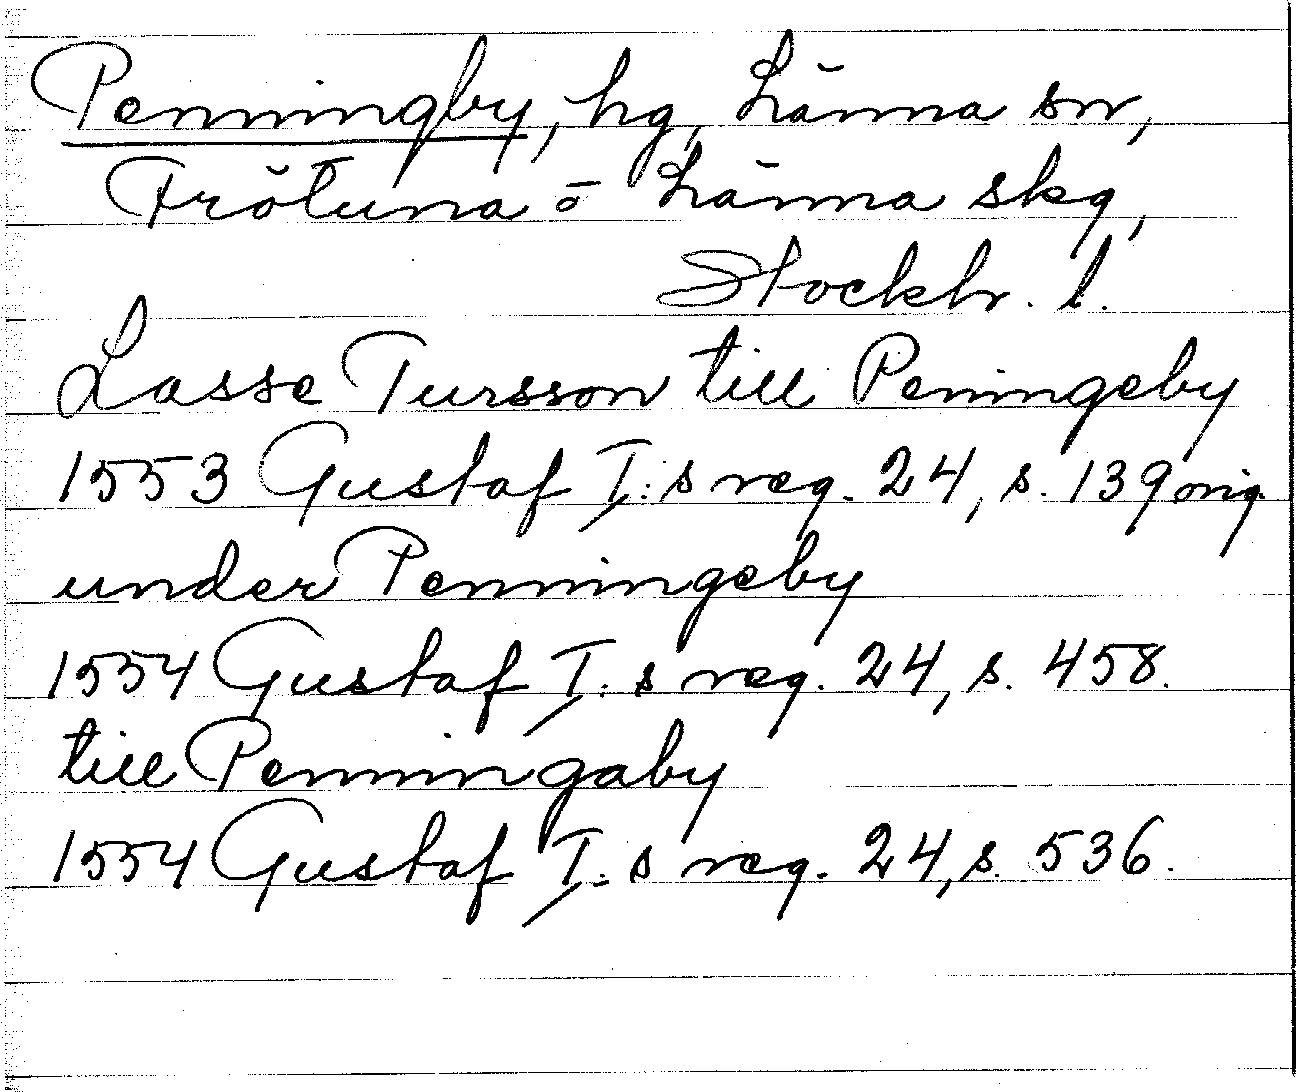 Penningby, hg, Länna sn,
Frötuna o Länna skg,
Stockh. l.
Lasse Tursson till Peningeby
1553 Gustaf I:s reg. 24, s. 139 orig.
under Penningeby
1554 Gustaf I:s reg. 24, s. 458.
till Penningaby
1554 Gustaf I:s reg. 24, s. 536.